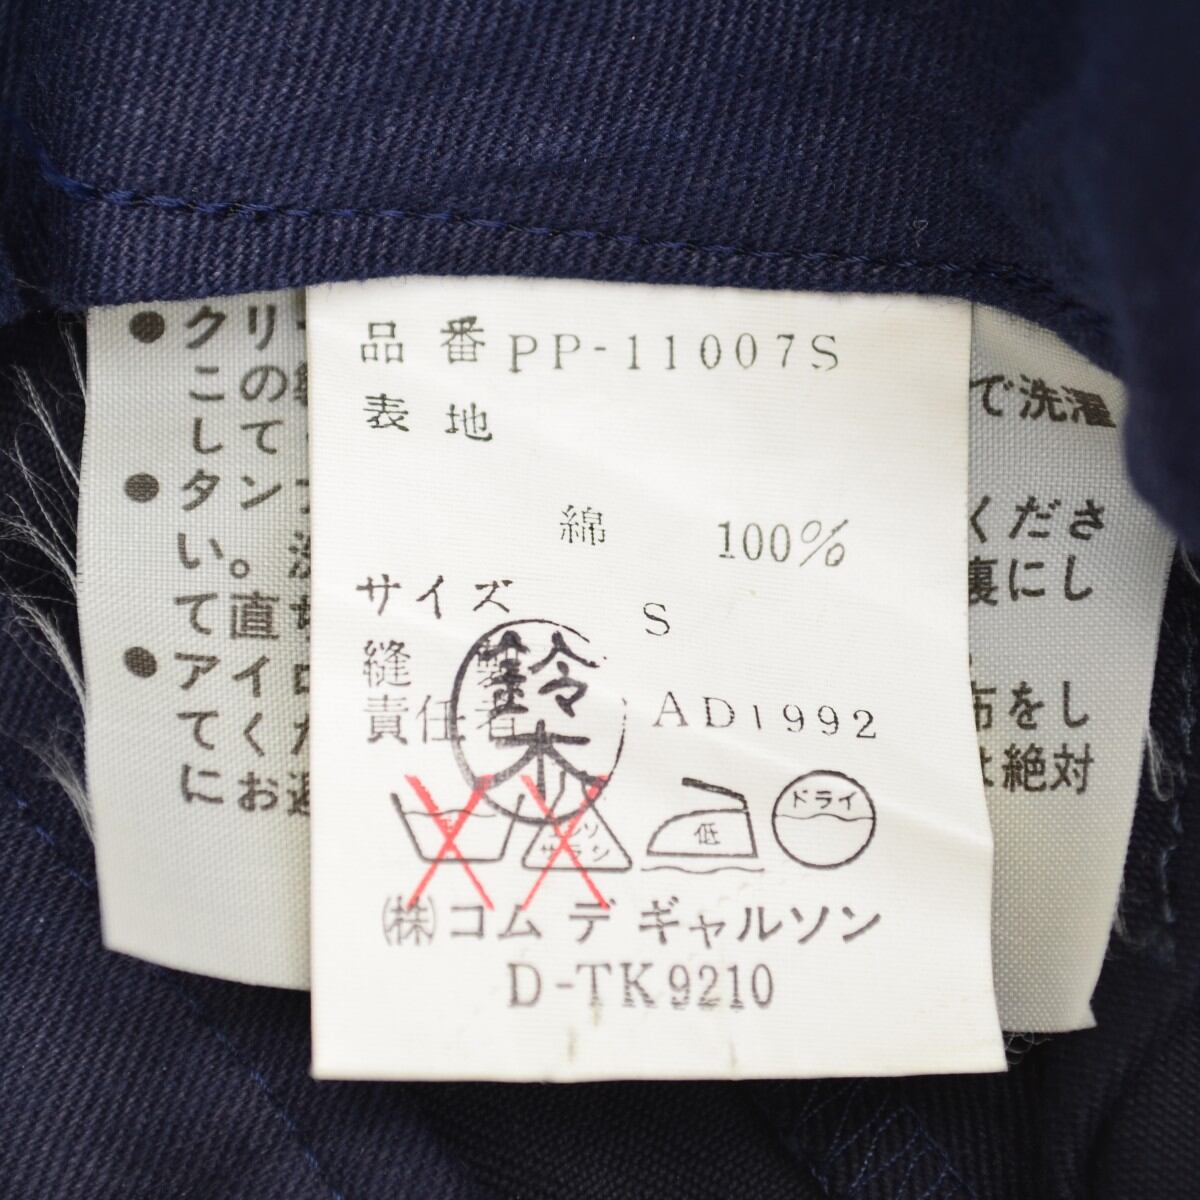 品番 PP-11007S
表地
綿 100%
サイズ S
縫製
責任者 AD1992
鈴木
エンソ
サラシ
低
ドライ
㈱コム デ ギャルソン
D-TK9210
●クリー
この
して
●タン
い。
て直
●アイロ
てくだ
にお避
で洗濯
くださ
裏にし
布をし
は絶対